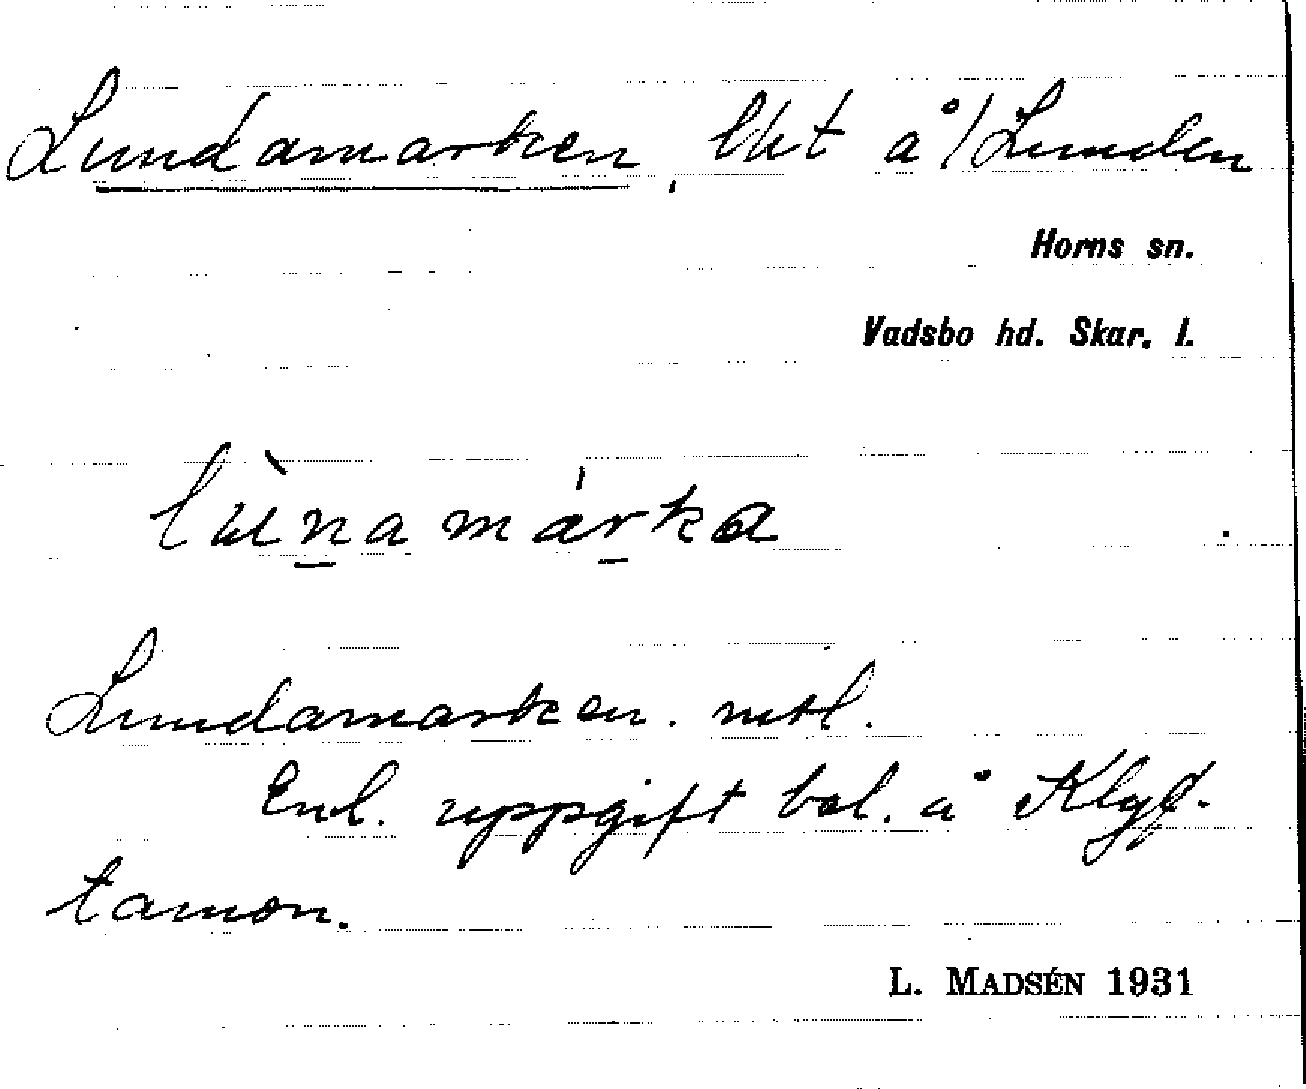 Lundamarken, lht å/Lunden
Horns sn.
Vadsbo hd. Skar. l.
lùn̲amár̲ka
Lundamarken. mtl.
Enl. uppgift bel. å Klyf-
tamon.
L. MADSÉN 1931